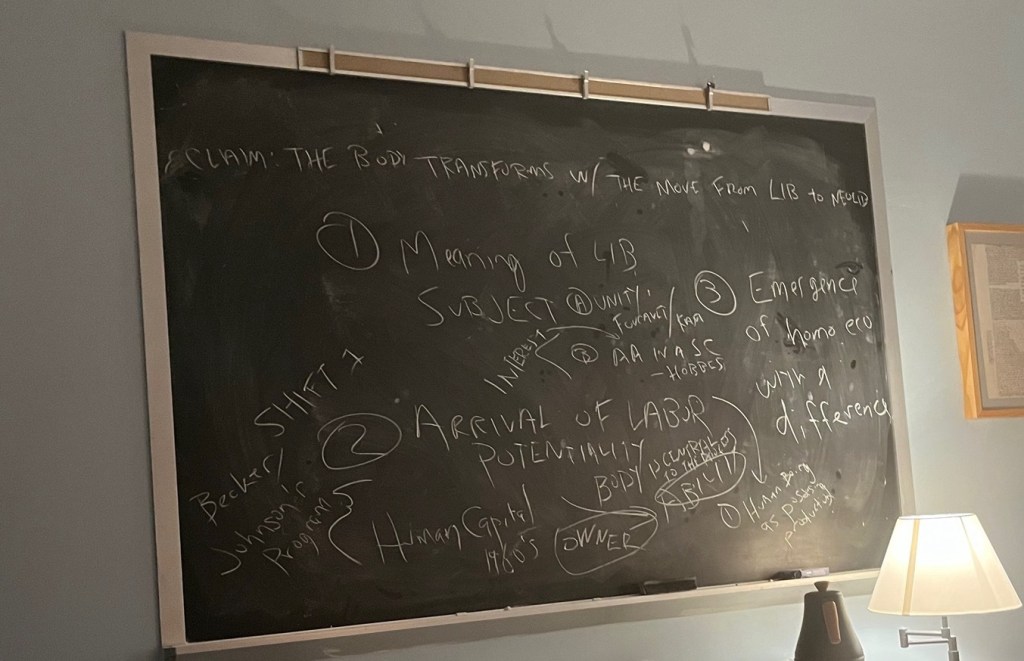 CLAIM: THE BODY TRANSFORMS W/ THE MOVE FROM LIB to NEOLIB
① Meaning of LIB
SUBJECT Ⓐ UNITY:
FOUCAULT/
INTEREST
Ⓑ
IN A SC
- HOBBES
③ Emergence
of homo eco
with a
difference
SHIFT
② ARRIVAL OF LABOR
POTENTIALITY
BODY IS CENTRAL
TO THE
ABILITY
Becker/
Johnson's
Program
Human Capital
1960's
OWNER
Human Being
as